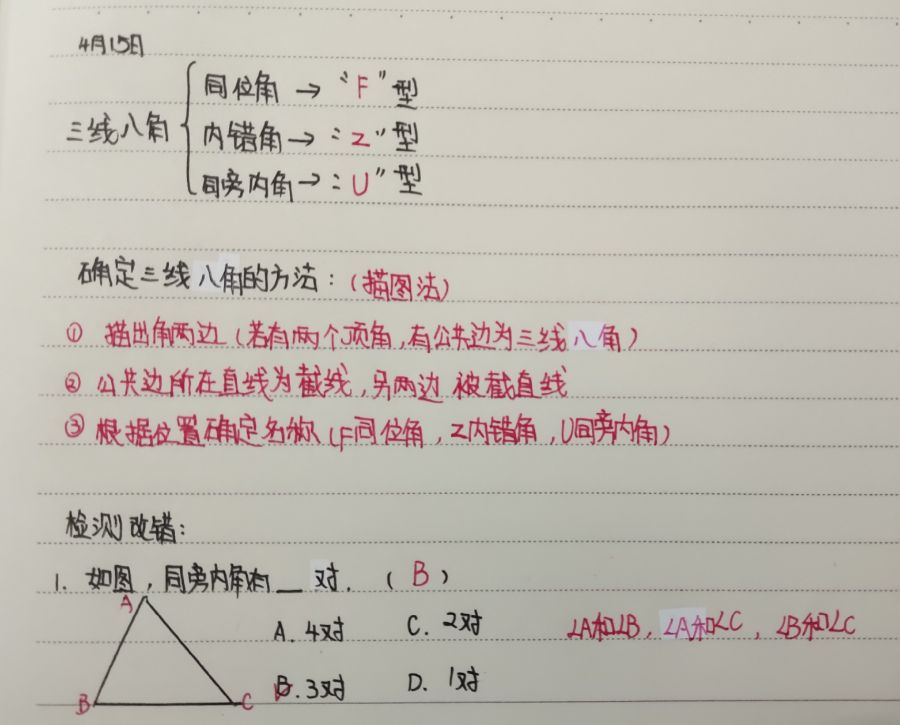 4月15日
同位角 → “F”型
三线八角 内错角 → “Z”型
同旁内角 → “U”型
确定三线八角的方法:(描图法)
① 描出角两边(若有两个顶角,有公共边为三线八角)
② 公共边所在直线为截线,另两边被截直线
③ 根据位置确定名称(F同位角,Z内错角,U同旁内角)
检测改错:
1. 如图,同旁内角有__对.(B)
A
A. 4对 C. 2对 ∠A和∠B,∠A和∠C,∠B和∠C
B. 3对 D. 1对
B C